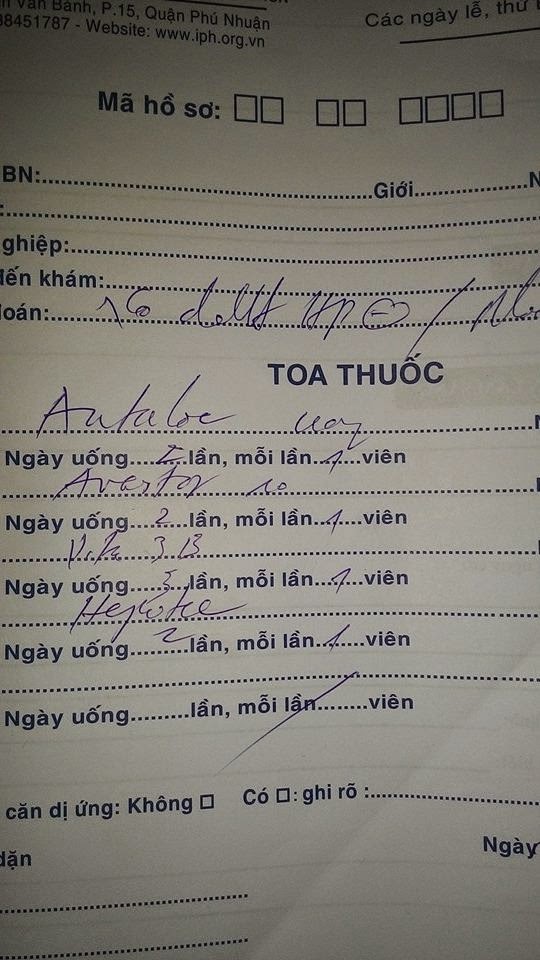 n Văn Bánh, P.15, Quận Phú Nhuận
38451787 - Website: www.iph.org.vn
Các ngày lễ, thứ
Mã hồ sơ:
BN: Giới N
:
ghiệp:
đến khám:
oán:
TOA THUỐC
Antaloc
Ngày uống lần, mỗi lần 1 viên
Avastor 10
Ngày uống 2 lần, mỗi lần 1 viên
Vita 3B
Ngày uống lần, mỗi lần 1 viên
Ngày uống 2 lần, mỗi lần 1 viên
Ngày uống lần, mỗi lần viên
căn dị ứng: Không Có : ghi rõ :
dặn Ngày